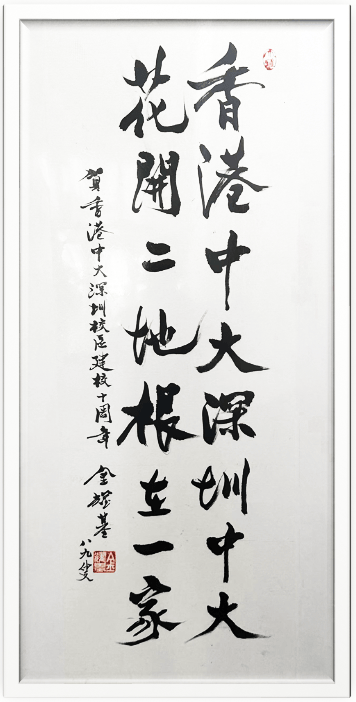 香港中大深圳中大
花開二地根在一家
賀香港中大深圳校區建校十周年 金耀基 八九叟